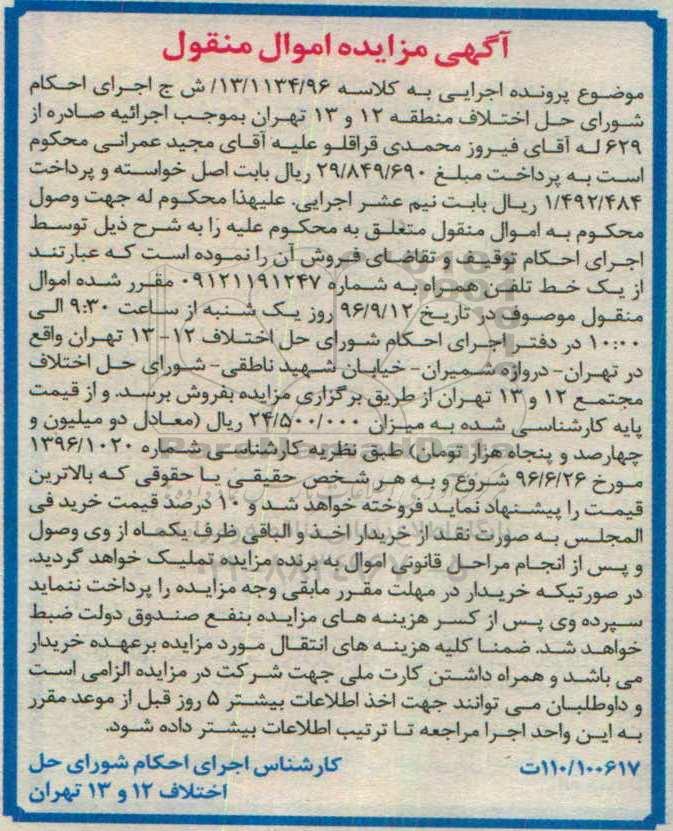 آگهی مزایده اموال منقول
موضوع پرونده اجرایی به کلاسه ۱۳/۱۱۳۴/۹۶/ ش ج اجرای احکام
شورای حل اختلاف منطقه ۱۲ و ۱۳ تهران بموجب اجرائیه صادره از
۶۲۹ له آقای فیروز محمدی قراقلو علیه آقای مجید عمرانی محکوم
است به پرداخت مبلغ ۲۹/۸۴۹/۶۹۰ ریال بابت اصل خواسته و پرداخت
۱/۴۹۲/۴۸۴ ریال بابت نیم عشر اجرایی. علیهذا محکوم له جهت وصول
محکوم به اموال منقول متعلق به محکوم علیه را به شرح ذیل توسط
اجرای احکام توقیف و تقاضای فروش آن را نموده است که عبارتند
از یک خط تلفن همراه به شماره ۰۹۱۲۱۱۹۱۲۴۷ مقرر شده اموال
منقول موصوف در تاریخ ۹۶/۹/۱۲ روز یک شنبه از ساعت ۹:۳۰ الی
۱۰:۰۰ در دفتر اجرای احکام شورای حل اختلاف ۱۲- ۱۳ تهران واقع
در تهران- دروازه شمیران- خیابان شهید ناطقی- شورای حل اختلاف
مجتمع ۱۲ و ۱۳ تهران از طریق برگزاری مزایده بفروش برسد. و از قیمت
پایه کارشناسی شده به میزان ۲۴/۵۰۰/۰۰۰ ریال (معادل دو میلیون و
چهارصد و پنجاه هزار تومان) طبق نظریه کارشناسی شماره ۱۳۹۶/۱۰۲۰
مورخ ۹۶/۶/۲۶ شروع و به هر شخص حقیقی یا حقوقی که بالاترین
قیمت را پیشنهاد نماید فروخته خواهد شد و ۱۰ درصد قیمت خرید فی
المجلس به صورت نقد از خریدار اخذ و الباقی ظرف یکماه از وی وصول
و پس از انجام مراحل قانونی اموال به برنده مزایده تملیک خواهد گردید.
در صورتیکه خریدار در مهلت مقرر مابقی وجه مزایده را پرداخت ننماید
سپرده وی پس از کسر هزینه های مزایده بنفع صندوق دولت ضبط
خواهد شد. ضمنا کلیه هزینه های انتقال مورد مزایده برعهده خریدار
می باشد و همراه داشتن کارت ملی جهت شرکت در مزایده الزامی است
و داوطلبان می توانند جهت اخذ اطلاعات بیشتر ۵ روز قبل از موعد مقرر
به این واحد اجرا مراجعه تا ترتیب اطلاعات بیشتر داده شود.
۱۱۰/۱۰۰۶۱۷ت
کارشناس اجرای احکام شورای حل
اختلاف ۱۲ و ۱۳ تهران